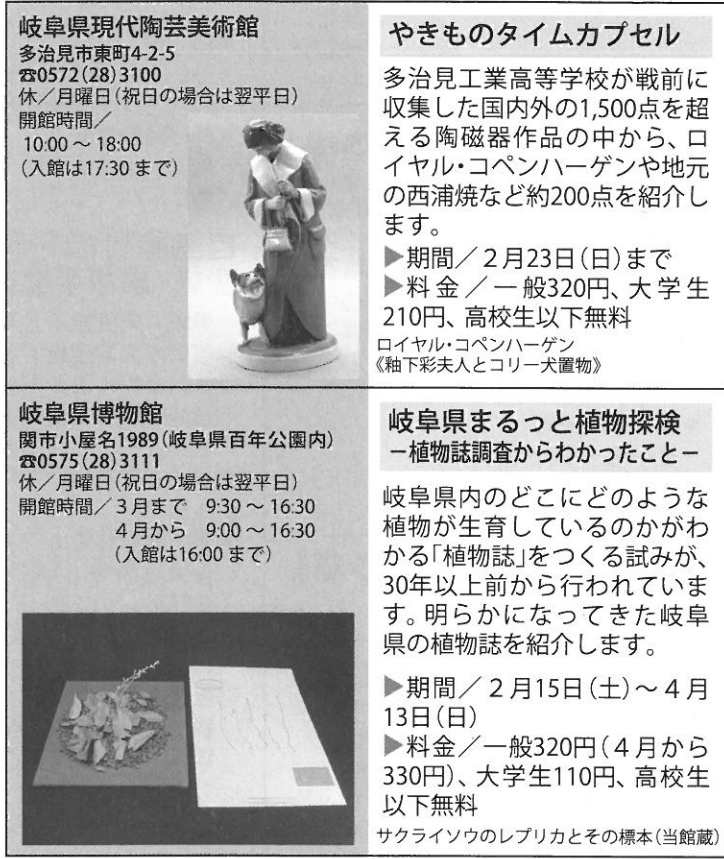 岐阜県現代陶芸美術館
多治見市東町4-2-5
☎0572(28)3100
休／月曜日(祝日の場合は翌平日)
開館時間／
10:00～18:00
(入館は17:30まで)
やきものタイムカプセル
多治見工業高等学校が戦前に
収集した国内外の1,500点を超
える陶磁器作品の中から、ロ
イヤル・コペンハーゲンや地元
の西浦焼など約200点を紹介し
ます。
▶期間／2月23日(日)まで
▶料金／一般320円、大学生
210円、高校生以下無料
ロイヤル・コペンハーゲン
《釉下彩夫人とコリー犬置物》
岐阜県博物館
関市小屋名1989(岐阜県百年公園内)
☎0575(28)3111
休／月曜日(祝日の場合は翌平日)
開館時間／3月まで 9:30～16:30
4月から 9:00～16:30
(入館は16:00まで)
岐阜県まるっと植物探検
－植物誌調査からわかったこと－
岐阜県内のどこにどのような
植物が生育しているのかがわ
かる「植物誌」をつくる試みが、
30年以上前から行われていま
す。明らかになってきた岐阜
県の植物誌を紹介します。
▶期間／2月15日(土)～4月
13日(日)
▶料金／一般320円(4月から
330円)、大学生110円、高校生
以下無料
サクライソウのレプリカとその標本(当館蔵)